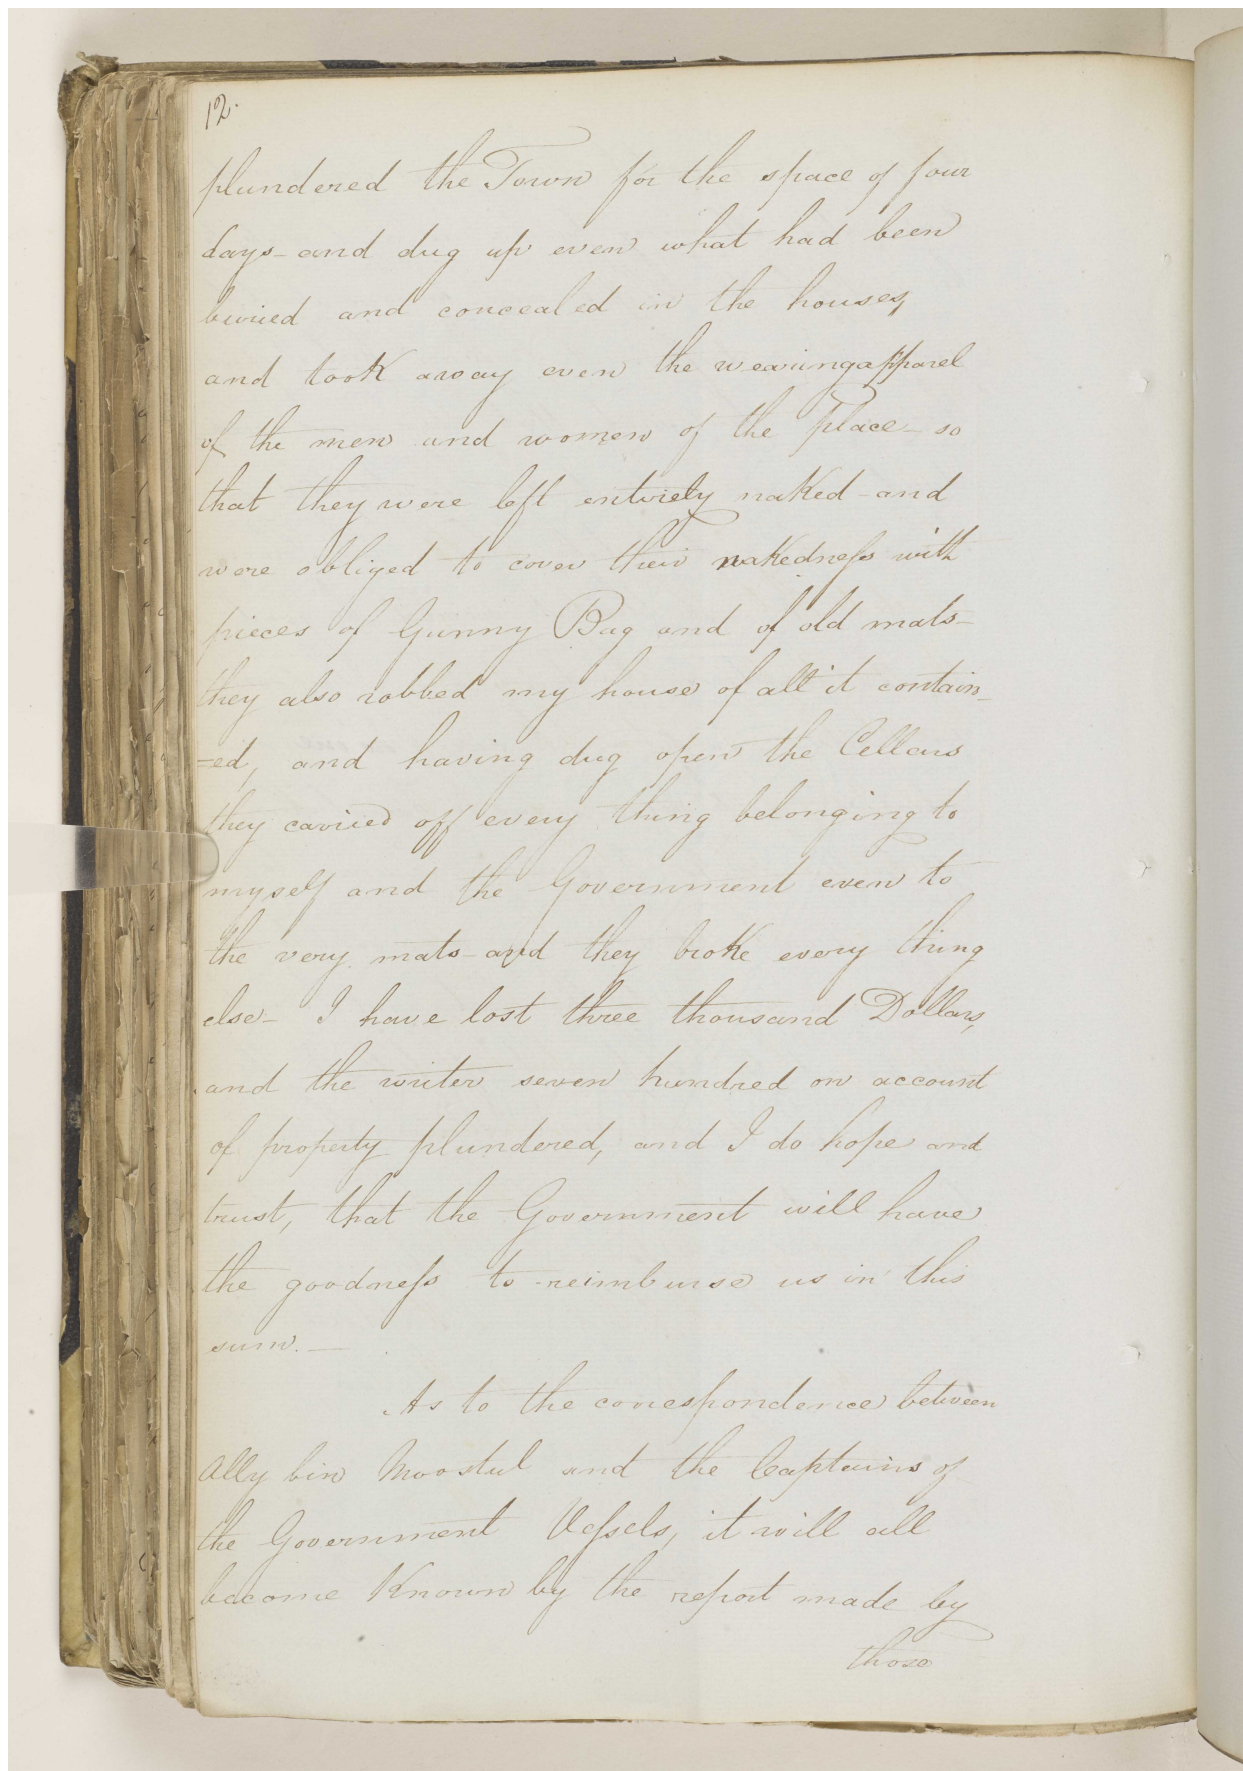 12.
plundered the Town for the space of four
days - and dug up even what had been
buried and concealed in the houses,
and took away even the wearing apparel
of the men and women of the Place - so
that they were left entirely naked - and
were obliged to cover their nakedness with
pieces of Gunny Bag and of old mats -
they also robbed my house of all it contain-
=ed, and having dug open the Cellars
they carried off every thing belonging to
myself and the Government even to
the very mats - and they broke every thing
else - I have lost three thousand Dollars,
and the writer seven hundred on account
of property plundered, and I do hope and
trust, that the Government will have
the goodness to reimburse us in this
sum. —
As to the correspondence between
Ally bin Moostul and the Captains of
the Government Vessels, it will all
become Known by the report made by
those